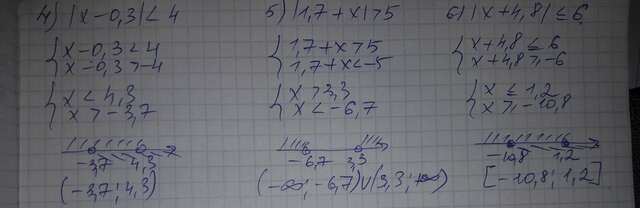 4) |x-0,3|<4
{ x-0,3<4
x-0,3>-4
{ x<4,3
x>-3,7
-3,7 4,3
(-3,7; 4,3)
5) |1,7+x|>5
{ 1,7+x>5
1,7+x<-5
{ x>3,3
x<-6,7
-6,7 3,3
(-∞; -6,7)∪(3,3; +∞)
6) |x+4,8|≤6
{ x+4,8≤6
x+4,8≥-6
{ x≤1,2
x≥-10,8
-10,8 1,2
[-10,8; 1,2]